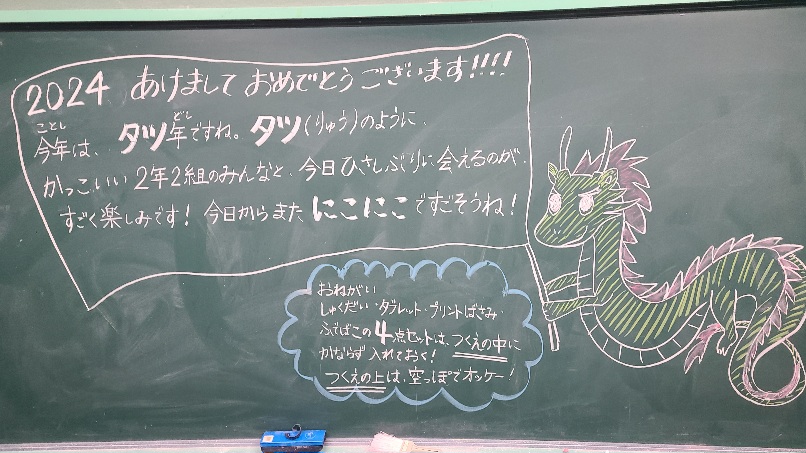 2024 あけまして おめでとう ございます!!!!
ことし どし
今年は、タツ年ですね。タツ(りゅう)のように、
かっこいい 2年2組のみんなと、今日ひさしぶりに会えるのが、
すごく楽しみです! 今日からまた にこにこ ですごそうね!
おねがい
しゅくだい・タブレット・プリントばさみ
ふでばこの4点セットは、つくえの中に
かならず 入れておく!
つくえの上は、空っぽでオッケー!